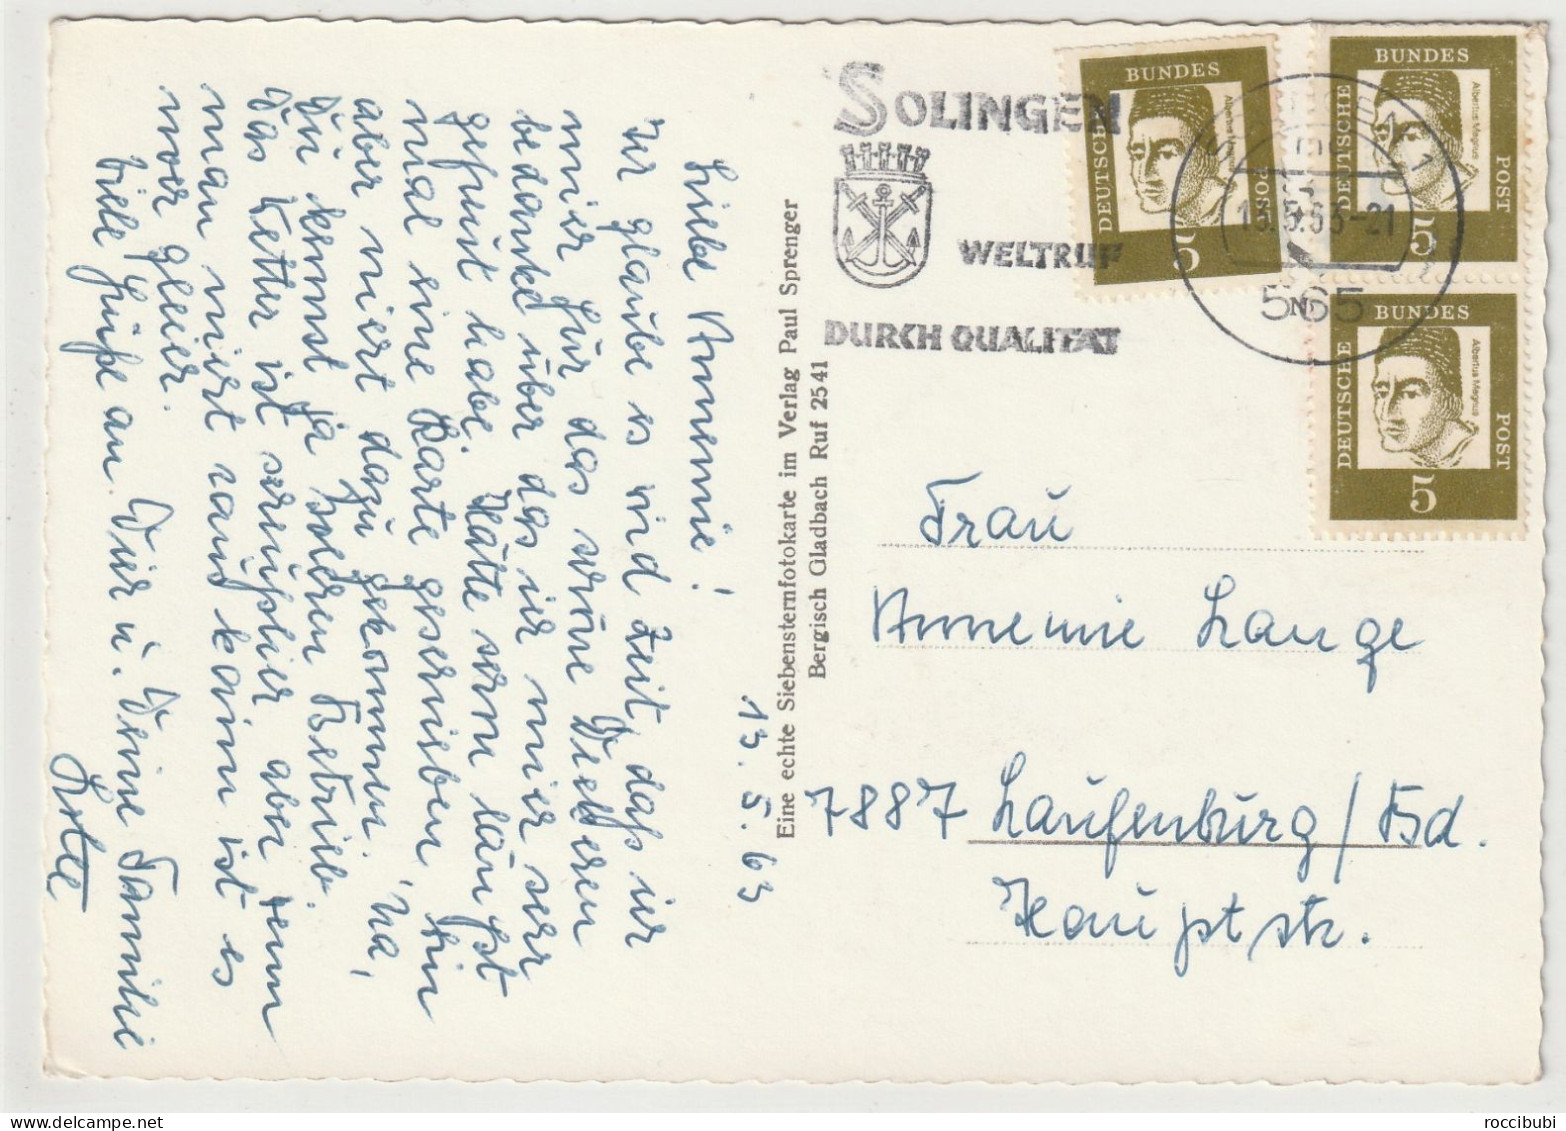 Liebe Annemie!
Ich glaube es wird Zeit, daß ich
mich für das schöne Deckchen
bedanke über das ich mich sehr
gefreut habe. Hätte schon längst
mal eine Karte geschrieben, bin
aber nicht dazu gekommen. Na,
Du kennst ja solchen Betrieb.
Das Wetter ist scheußlich aber wenn
man nicht raus kann ist es
noch gleich.
Viele Grüße an Dich u. Deine Familie
Lotte
13. 5. 63
Eine echte Siebensternfotokarte im Verlag Paul Sprenger
Bergisch Gladbach Ruf 2541
SOLINGEN
WELTRUF
DURCH QUALITÄT
SOLINGEN 1
13.5.63-21
565
DEUTSCHE BUNDES POST
Albertus Magnus
5
DEUTSCHE BUNDES POST
Albertus Magnus
5
DEUTSCHE BUNDES POST
Albertus Magnus
5
Frau
Annemie Lange
7887 Laufenburg/Bd.
Hauptstr.
roccibubi